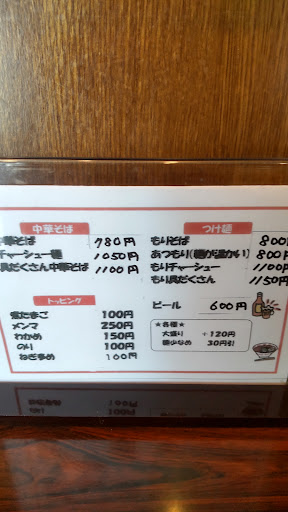 中華そば
中華そば 780円
チャーシュー麺 1050円
具だくさん中華そば 1100円
トッピング
煮たまご 100円
メンマ 250円
わかめ 150円
のり 100円
ねぎ多め 100円
つけ麺
もりそば 800円
あつもり(麺が温かい) 800円
もりチャーシュー 1100円
もり具だくさん 1150円
ビール 600円
★各種★
大盛り +120円
麺少なめ 30円引